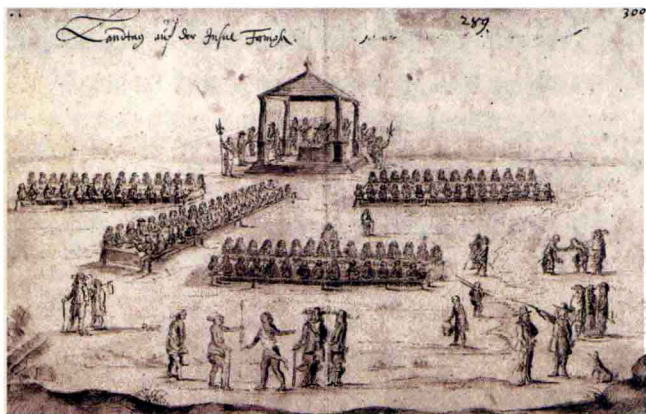 Landtag auf der Insul Femern.
289.
300